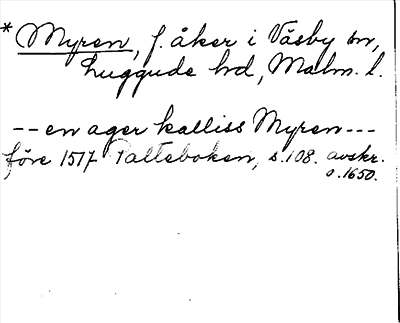 * Myren, f. åker i Väsby sn,
Luggude hd, Malm. l.
-- en ager kalliss Myren ---
före 1517 Palteboken, s. 108. avskr.
o. 1650.